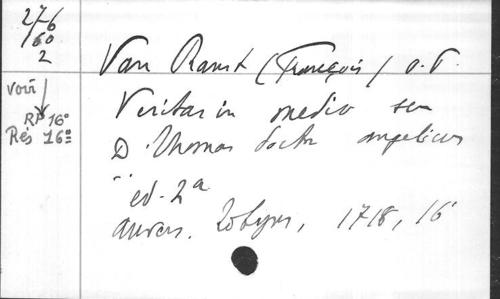 276
160
2
Van Ranst (François) o.P.
voir
RP 16°
Rés 16°
Veritas in medio seu
D. Thomas doctor angelicus
ed. 2a
Anvers. , 1718, 16°